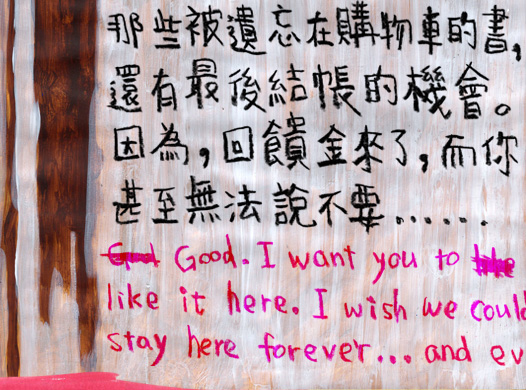 那些被遺忘在購物車的書,
還有最後結帳的機會。
因為,回饋金來了,而你
甚至無法說不要......
Good. I want you to
like it here. I wish we could
stay here forever... and ev